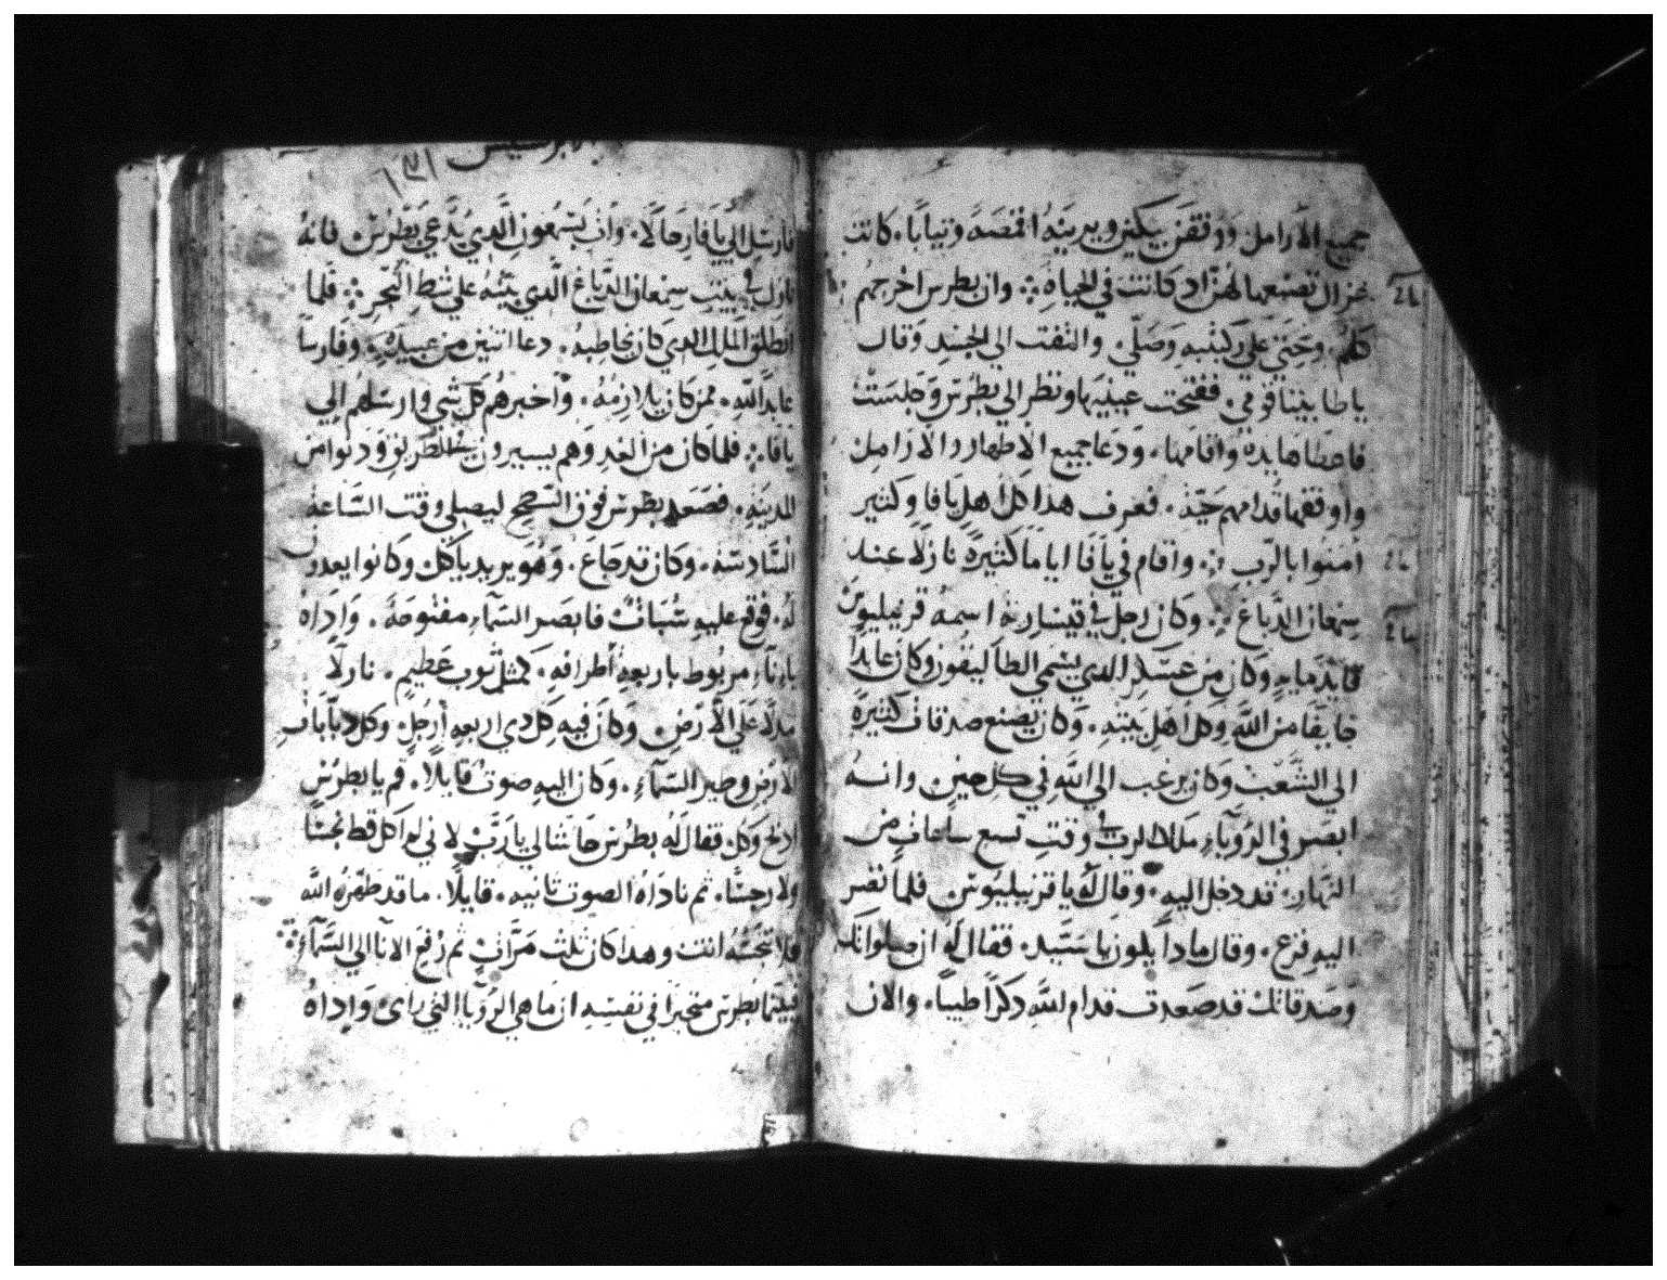 جميع الأرامل ووقفن يبكين ويرينه اقمصه وثياباً. كانت
غزال تصنعها لهن اذ كانت في الحياه ؞ وان بطرس اخرجهم
كلهم. وجثي علي ركبتيه وصلي. والتفت الي الجسد وقال
ياطابيثا قومي. ففتحت عينيها ونظر الي بطرس وجلست
فاعطاها يده واقامها. ودعا جميع الاطهار والارامل
واوقفها قدامهم حيّة. فعرف هذا كل اهل يافا وكثير
امنوا بالرب ؞ واقام في يافا اياما كثيرة نازلا عند
سمعان الدباغ ؞ وكان رجل في قيساريه اسمه قرنيليوس
قايد مايه وكان من عسكر الذي يسمي الطاليقون وكان عابدا
خايفا من الله وكل اهل بيته. وكان يصنع صدقات كثيرة
الي الشعب وكان يرغب الي الله في كل حين وانه
ابصر في الرؤيا ملاك الرب وقت تسع ساعات من
النهار. قد دخل اليه. وقال له يا قرنيليوس فلما نظر
اليه فزع. وقال ماذا يكون يا سيد. فقال له ان صلواتك
وصدقاتك قد صعدت قدام الله ذكراً طيباً. والان
الابركسيس
١٣١
فارسل الي يافا رجالا. وات بسمعون الذي يدعي بطرس. فانه
نازل في بيت سمعان الدباغ الذي بيته علي شط البحر ؞ فلما
انطلق الملك الذي كان يخاطبه. دعا اثنين من عبيده. وفارسا
عابد الله. ممن كان يلازمه. واخبرهم كل شي وارسلهم الي
يافا ؞ فلما كان من الغد وهم يسيرون في الطريق ودنوا من
المدينه. فصعد بطرس فوق السطح ليصلي وقت الساعة
السادسه. وكان قد جاع. وهو يريد ياكل. وكانوا يعدون
له. فوقع عليه سبات فابصر السماء مفتوحة. واذاه
باناء مربوط باربعة اطرافه. كمثل ثوب عظيم. نازلا
مدلا علي الارض. وكان فيه كل ذي اربعه ارجل وكل دبابات
الارض وطير السماء. وكان اليه صوت قايلا. قم يا بطرس
اذبح وكل. فقال له بطرس حاشا لي يا رب لاني لم اكل قط نجسا
ولا رجسا. ثم ناداه الصوت ثانيه. قايلا. ما قد طهره الله
فلا تنجسه انت وهذا كان ثلث مرات ثم رفع الانا الي السماء ؞
فبينما بطرس متحيرا في نفسه ان ما هي الرؤيا التي راي واذاه